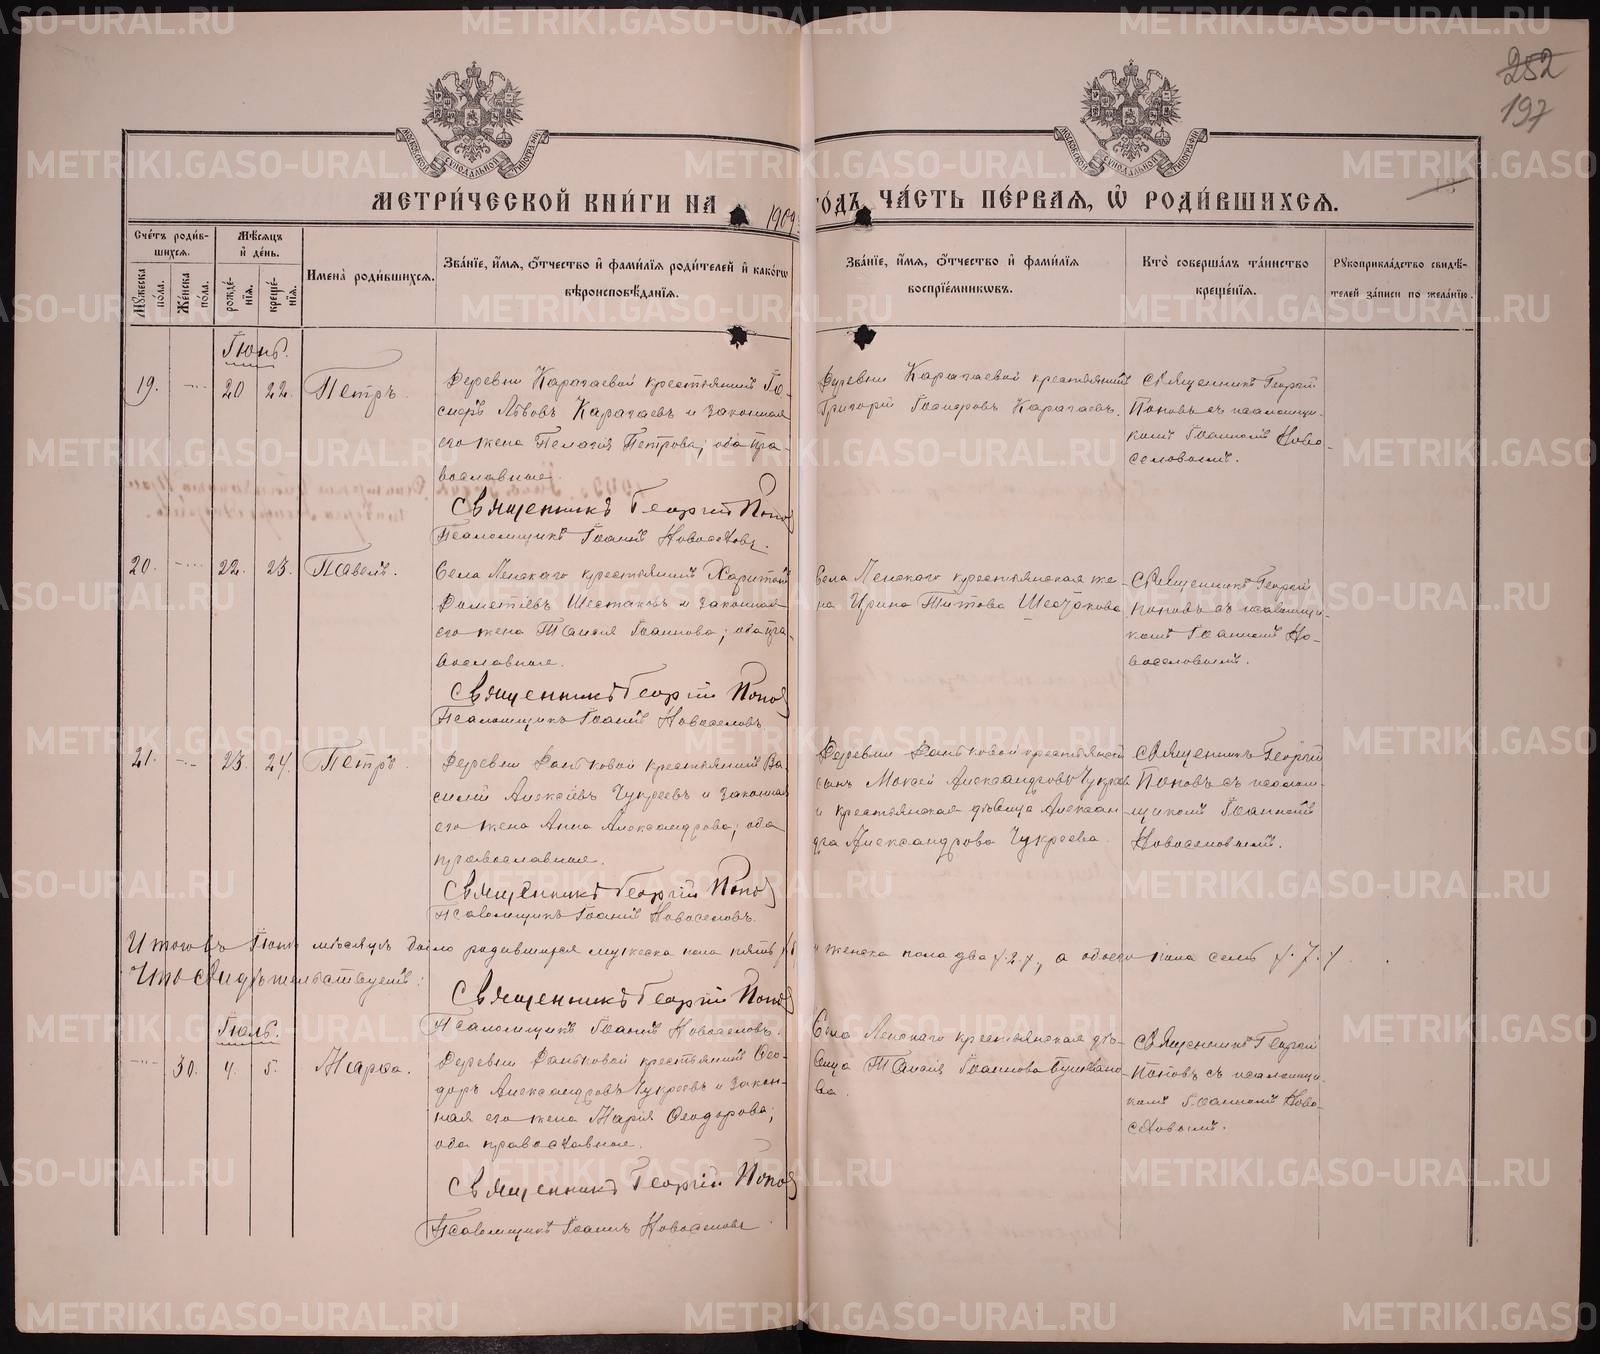 252
197
МОСКОВСКОЙ СѴНОДАЛЬНОЙ ТИПОГРАФІИ
МОСКОВСКОЙ СѴНОДАЛЬНОЙ ТИПОГРАФІИ
МЕТРИ́ЧЕСКОЙ КНИ́ГИ НА 1909 ГО́ДЪ, ЧА́СТЬ ПЕ́РВАЯ, Ѡ҆ РОДИ́ВШИХСЯ.
Сче́тъ роди́в-
шихся.
Мꙋжеска по́ла.
Же́нска по́ла.
Мѣ́сяцъ
и҆ де́нь.
рожде́-
нїя.
креще́-
нїя.
И҆мена̀ роди́вшихся.
Зва́нїе, и҆́мя, ѻ҆́тчество и҆ фами́лїя роди́телей и҆ како́гѡ
вѣроисповѣ́данїя.
Зва́нїе, и҆́мя, ѻ҆́тчество и҆ фами́лїя
воспрїе́мникѡвъ.
Кто̀ соверша́лъ та́инство
креще́нїя.
Рꙋкоприкла́дство свидѣ́-
телей за́писи по жела́нїю.
Іюнь.
19. — 20 22. Петръ.
Деревни Карагаевой крестьянинъ Іо-
сифъ Львовъ Карагаевъ и законная
его жена Пелагія Петрова; оба пра-
вославные.
Священникъ Георгій Попов
Псаломщикъ Іоаннъ Новоселовъ.
Деревни Карагаевой крестьянинъ
Григорій Іосифовъ Карагаевъ.
Священникъ Георгій
Поповъ съ псаломщи-
комъ Іоанномъ Ново-
селовымъ.
20. — 22. 23. Павелъ.
Села Ленскаго крестьянинъ Харитонъ
Шестаковъ и законная
его жена Таисія Іоаннова; оба пра-
вославные.
Священникъ Георгій Попов
Псаломщикъ Іоаннъ Новоселовъ
Села Ленскаго крестьянская же-
на Ирина Титова Шестакова
Священникъ Георгій
Поповъ съ псаломщи-
комъ Іоанномъ Но-
воселовымъ.
21. — 23. 24. Петръ.
Деревни крестьянинъ Ва-
силій Алексіевъ Чукреевъ и законная
его жена Анна Александрова; оба
православные.
Священникъ Георгій Попов
Псаломщикъ Іоаннъ Новоселовъ.
Деревни крестьянскій
сынъ Моисей Александровъ Чукреевъ
и крестьянская дѣвица Алексан-
дра Александрова Чукреева.
Священникъ Георгій
Поповъ съ псалом-
щикомъ Іоанномъ
Новоселовымъ.
Итого въ Іюнѣ мѣсяцѣ было родившихся мужеска пола пять /5/
и женска пола два /.2./, а обоего пола семь /.7./
Что свидѣтельствуемъ:
Священникъ Георгій Попов
Псаломщикъ Іоаннъ Новоселовъ.
Іюль.
— 30. 4. 5. Марѳа.
Деревни крестьянинъ Ѳео-
доръ Александровъ Чукреевъ и закон-
ная его жена Марія Ѳеодорова;
оба православные.
Священникъ Георгій Попов
Псаломщикъ Іоаннъ Новоселовъ
Села Ленскаго крестьянская дѣ-
вица Таисія Іоаннова
Священникъ Георгій
Поповъ съ псаломщи-
комъ Іоанномъ Ново-
селовымъ.
METRIKI.GASO-URAL.RU